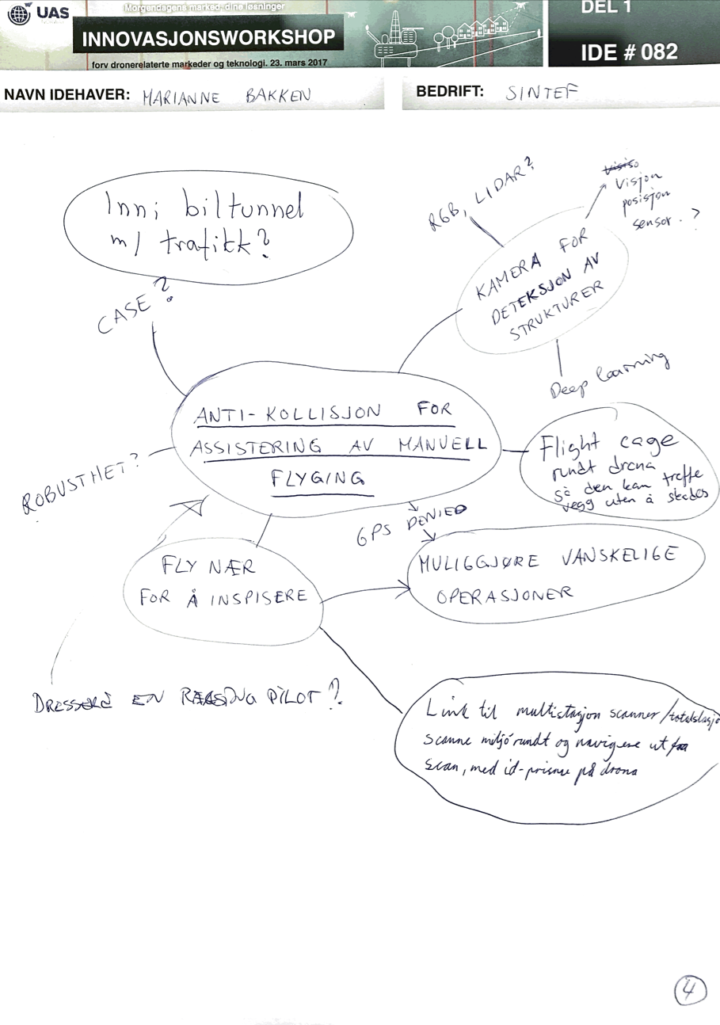 UAS
Morgendagens marked, dine løsninger
INNOVASJONSWORKSHOP
forv dronerelaterte markeder og teknologi. 23. mars 2017
DEL 1
IDE # 082
NAVN IDEHAVER: MARIANNE BAKKEN
BEDRIFT: SINTEF
Inni biltunnel
m/ trafikk?
CASE?
RGB, LIDAR?
Visjon
posisjon
sensor.?
KAMERA FOR
DETEKSJON AV
STRUKTURER
Deep learning
ANTI-KOLLISJON FOR
ASSISTERING AV MANUELL
FLYGING
ROBUSTHET?
Flight cage
rundt drona
Så den kan treffe
vegg uten å skades
GPS DENIED
FLY NÆR
FOR Å INSPISERE
MULIGGJØRE VANSKELIGE
OPERASJONER
DRESSERE EN RACING PILOT?
Link til multistasjon scanner/totalstasjo
Scanne miljø rundt og navigere ut fra
scan, med id-prisme på drona
4